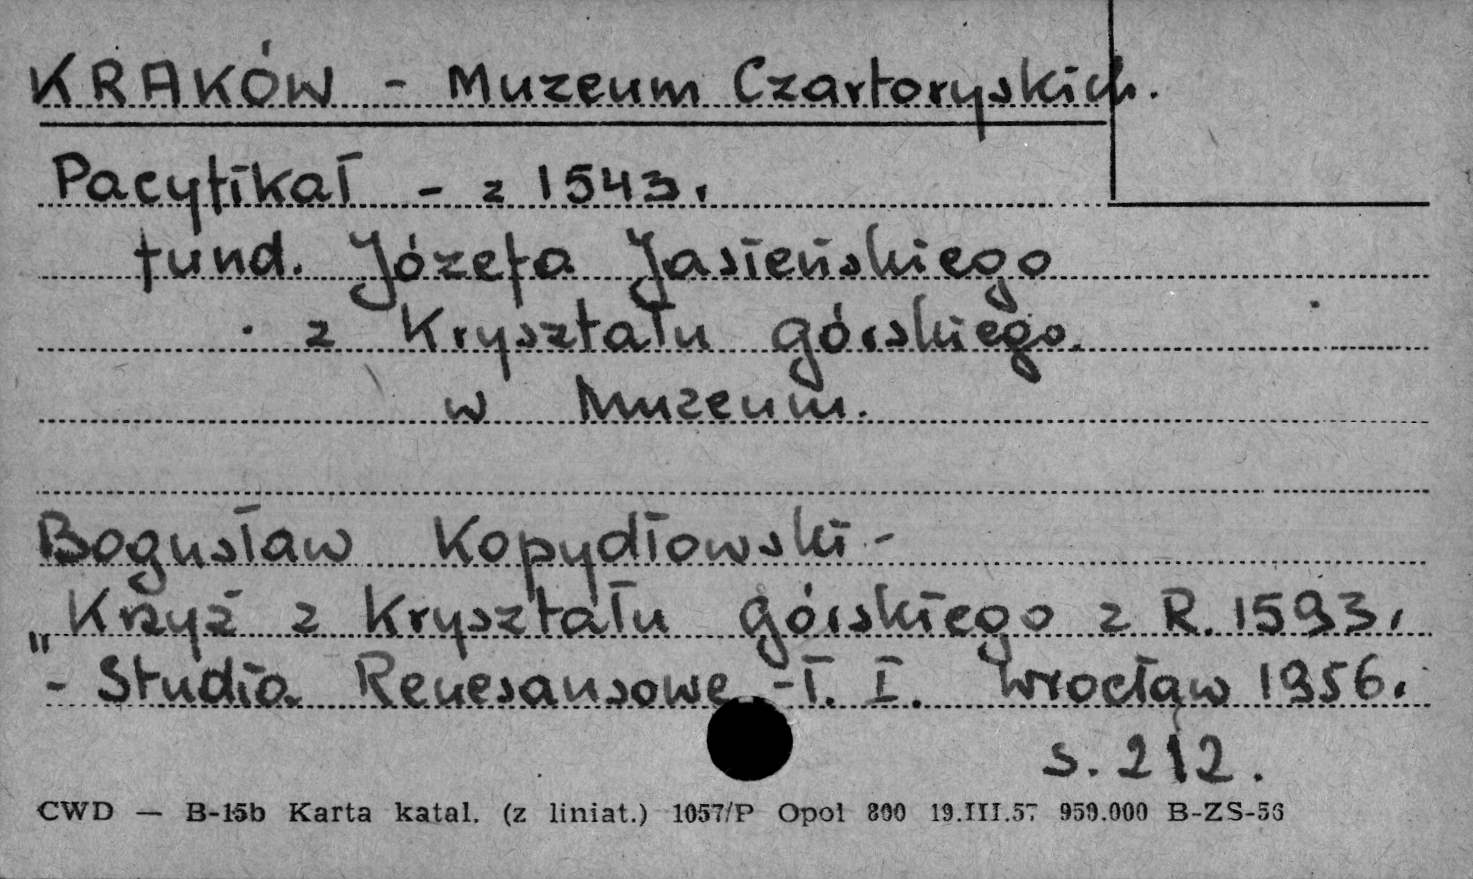 KRAKÓW - Muzeum Czartoryskich.
Pacyfikał - z 1543.
fund. Józefa Jasieńskiego
z Kryształu górskiego.
w Muzeum.
Bogusław Kopydłowski -
„Krzyż z Kryształu górskiego z R. 1593.
- Studia Renesansowe - T. I. Wrocław 1956.
s. 212.
CWD — B-15b Karta katal. (z liniat.) 1057/P Opol 800 19.III.57 959.000 B-ZS-56